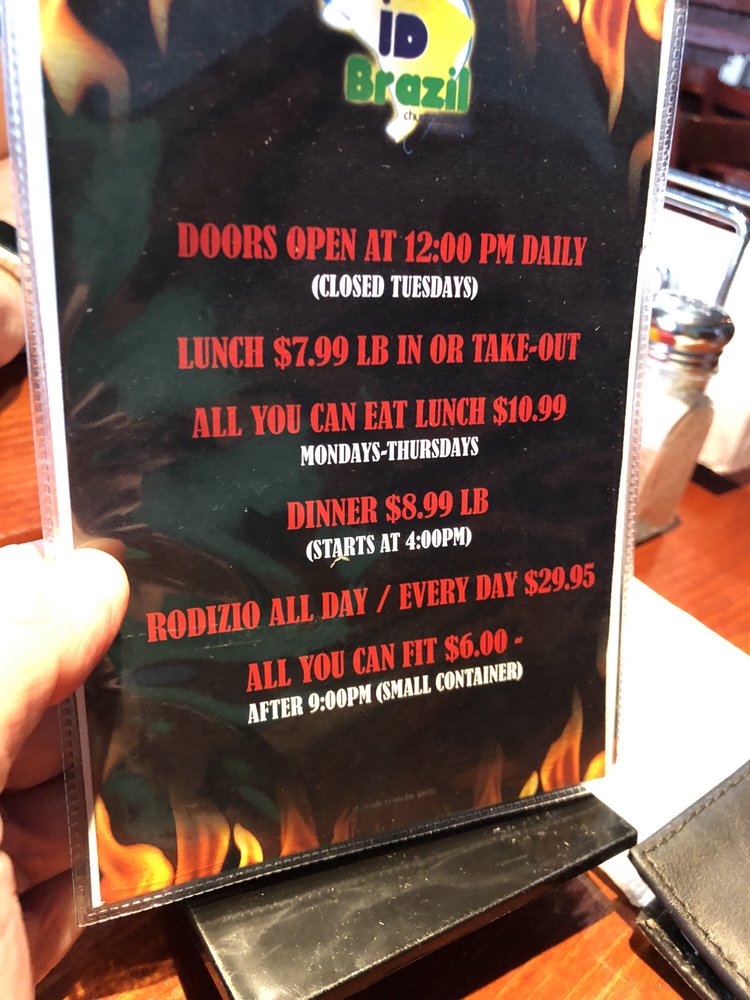 iD
Brazil
DOORS OPEN AT 12:00 PM DAILY
(CLOSED TUESDAYS)
LUNCH $7.99 LB IN OR TAKE-OUT
ALL YOU CAN EAT LUNCH $10.99
MONDAYS-THURSDAYS
DINNER $8.99 LB
(STARTS AT 4:00PM)
RODIZIO ALL DAY / EVERY DAY $29.95
ALL YOU CAN FIT $6.00 -
AFTER 9:00PM (SMALL CONTAINER)